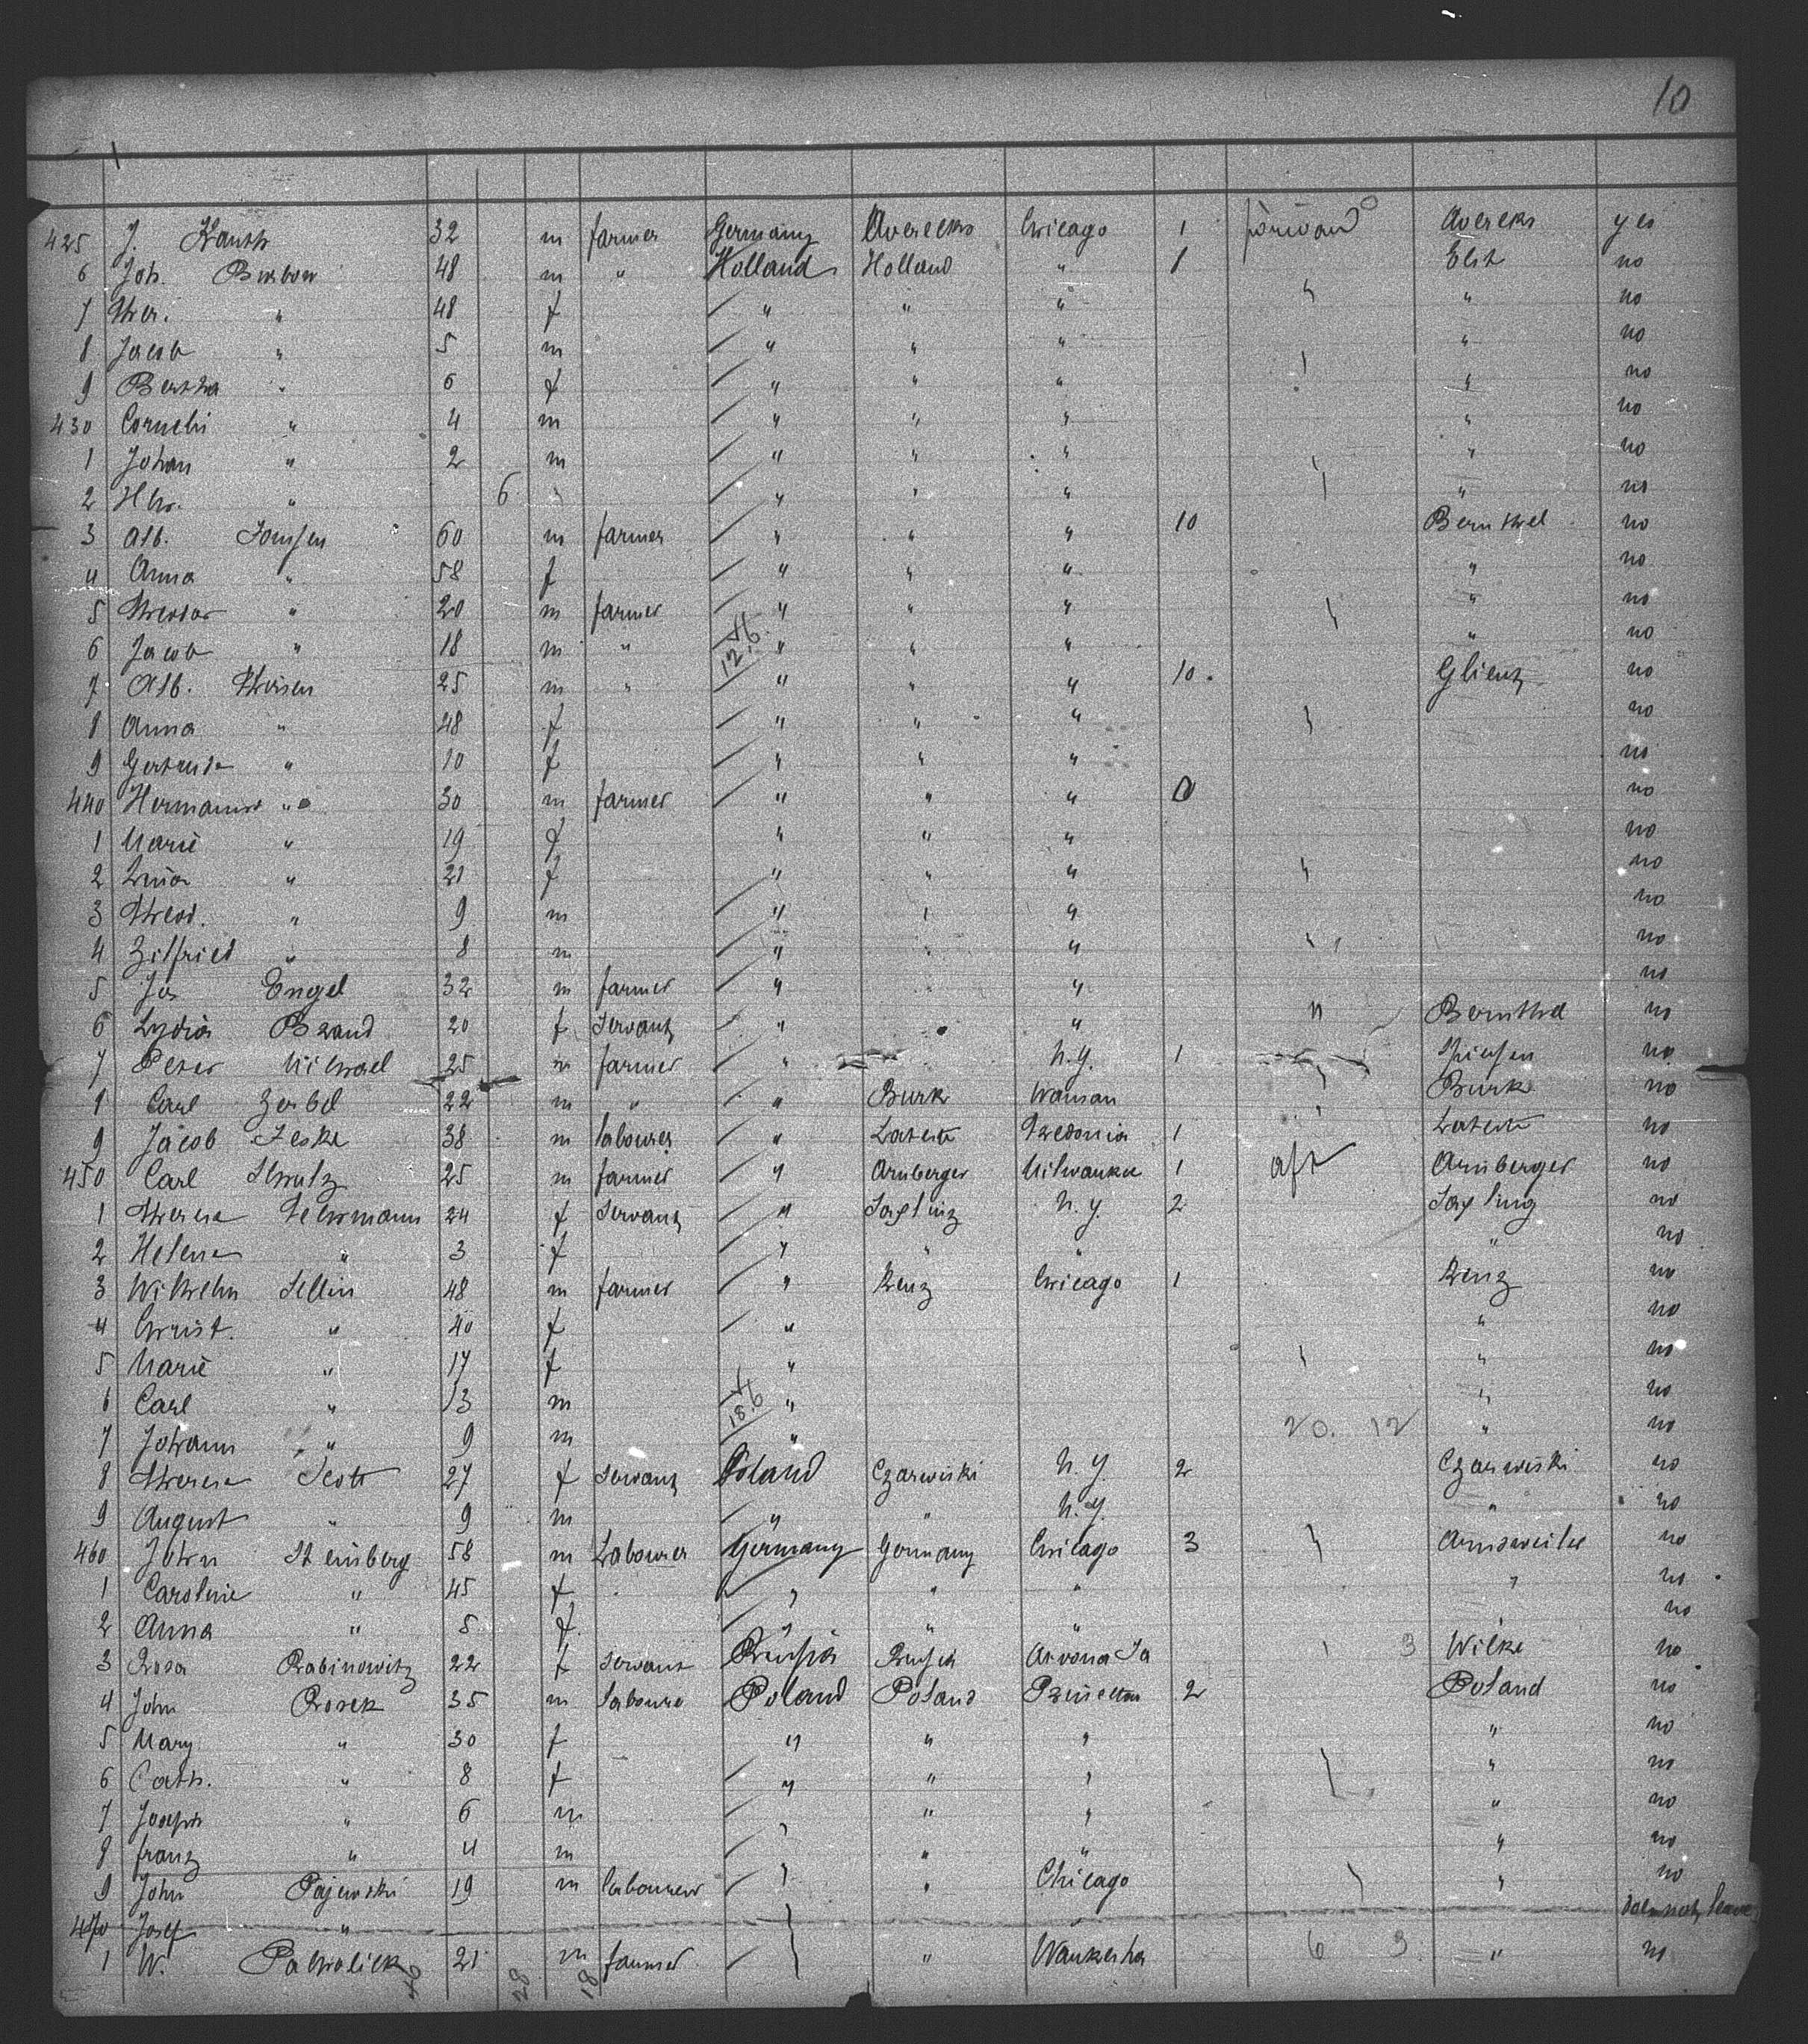 10
425 J. Kauth 32 m farmer Germany Avereeks Chicago 1 forward Avereks yes
6 Joh. Burbow 48 m " Holland Holland " 1 Elst no
7 Ther. " 48 f " " " " " no
8 Jacob " 5 m " " " " no
9 Bertha " 6 f " " " " no
430 Corneli " 4 m " " " " no
1 Johan " 2 m " " " " no
2 " 6 " " " " no
3 Alb. Jonssen 60 m farmer " " " 10 Bernthel no
4 Anna " 58 f " " " " no
5 Theodor " 20 m farmer " " " " no
6 Jacob " 18 m " 12.6 " " " " no
7 Alb. Theisen 25 m " " " " 10. Glientz no
8 Anna " 48 f " " " no
9 Gertruda " 10 f " " " no
440 Hermann " 30 m farmer " " " 0 no
1 Marie " 19 f " " " no
2 " 21 f " " " " no
3 Theod. " 9 m " " " no
4 Zilfried " 8 m " " " no
5 Jos Engel 32 m farmer " " " no
6 Lydia Brand 20 f Servant " " " " Bernthel no
7 Peter Michael 25 m farmer " N.Y. 1 no
8 Carl Zerbel 22 m " " Burk Warsan Burke no
9 Jacob Jeske 38 m labourer " Fredonia 1 no
450 Carl Schultz 25 m farmer " Arnberger Milwaukee 1 aft Arnberger no
1 Theresa Tehrmann 24 f Servant " N.Y. 2 no
2 Helene " 3 f " " " " no
3 Wilhelm Sellin 48 m farmer " Renz Chicago 1 Renz no
4 Christ. " 40 f " " no
5 Marie " 17 f " " no
6 Carl " 13 m 18.6 " " no
7 Johann " 9 m " 20. 12 " no
8 Theresa Scott 27 f Servant Poland Czarwiski N.Y. 2 Czarwiski no
9 August " 9 m " " N.Y. " no
460 John Steinberg 58 m Labourer Germany Germany Chicago 3 Arnsweiler no
1 Caroline " 45 f " " " " no
2 Anna " 5 f " " " no
3 Rosa Rabinowitz 22 f Servant Russia Russia 3 Wilke no
4 John Rosek 35 m laboure Poland Poland Princeton 2 Poland no
5 Mary " 30 f " " " " no
6 Cath. " 8 f " " " " no
7 Joseph " 6 m " " " " no
8 franz " 4 m " " " no
9 John Pajewski 19 m labourer " " Chicago " no
470 Josef " does not leave
1 W. Pachalick 21 m farmer " Waukesha 6 3 " no
28 18